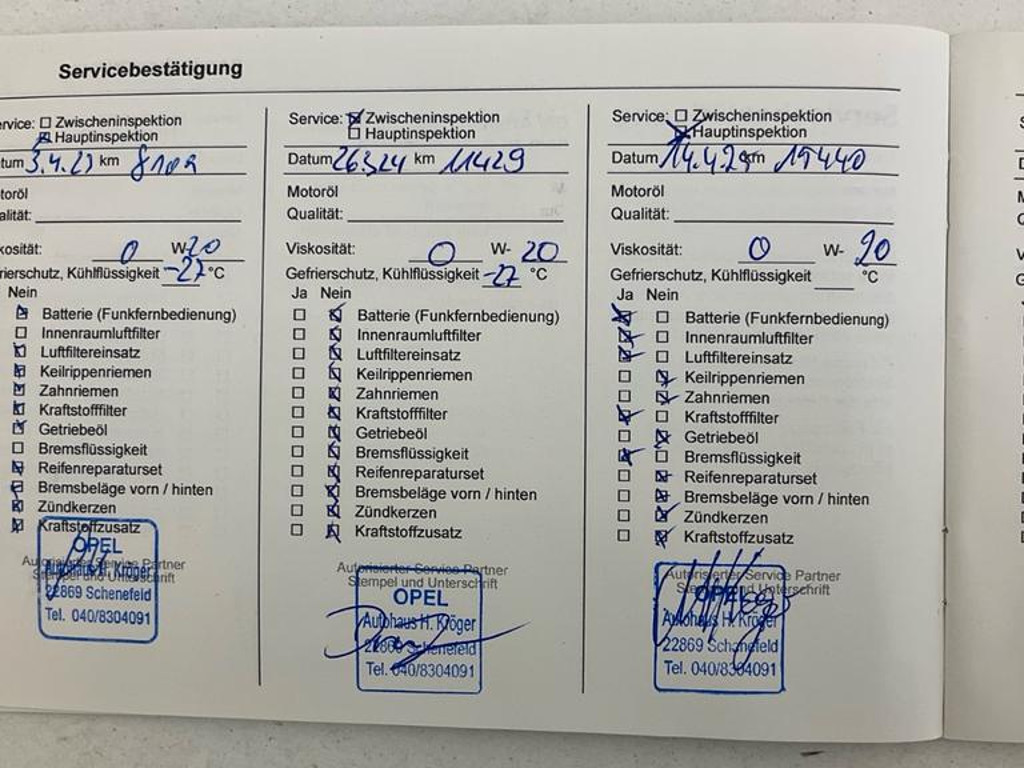 Servicebestätigung
rvice: Zwischeninspektion
Hauptinspektion
tum 3.4.23 km
toröl
alität:
kosität: 0 W-20
frierschutz, Kühlflüssigkeit -27 °C
Nein
Batterie (Funkfernbedienung)
Innenraumluftfilter
Luftfiltereinsatz
Keilrippenriemen
Zahnriemen
Kraftstofffilter
Getriebeöl
Bremsflüssigkeit
Reifenreparaturset
Bremsbeläge vorn / hinten
Zündkerzen
Kraftstoffzusatz
Autorisierter Service Partner
Stempel und Unterschrift
OPEL
Autohaus H. Kröger
22869 Schenefeld
Tel. 040/8304091
Service: Zwischeninspektion
Hauptinspektion
Datum 26.3.24 km 11429
Motoröl
Qualität:
Viskosität: 0 W- 20
Gefrierschutz, Kühlflüssigkeit -27 °C
Ja Nein
Batterie (Funkfernbedienung)
Innenraumluftfilter
Luftfiltereinsatz
Keilrippenriemen
Zahnriemen
Kraftstofffilter
Getriebeöl
Bremsflüssigkeit
Reifenreparaturset
Bremsbeläge vorn / hinten
Zündkerzen
Kraftstoffzusatz
Autorisierter Service Partner
Stempel und Unterschrift
OPEL
Autohaus H. Kröger
22869 Schenefeld
Tel. 040/8304091
Service: Zwischeninspektion
Hauptinspektion
Datum 14.4.25 km
Motoröl
Qualität:
Viskosität: 0 W- 20
Gefrierschutz, Kühlflüssigkeit °C
Ja Nein
Batterie (Funkfernbedienung)
Innenraumluftfilter
Luftfiltereinsatz
Keilrippenriemen
Zahnriemen
Kraftstofffilter
Getriebeöl
Bremsflüssigkeit
Reifenreparaturset
Bremsbeläge vorn / hinten
Zündkerzen
Kraftstoffzusatz
Autorisierter Service Partner
Stempel und Unterschrift
OPEL
Autohaus H. Kröger
22869 Schenefeld
Tel. 040/8304091